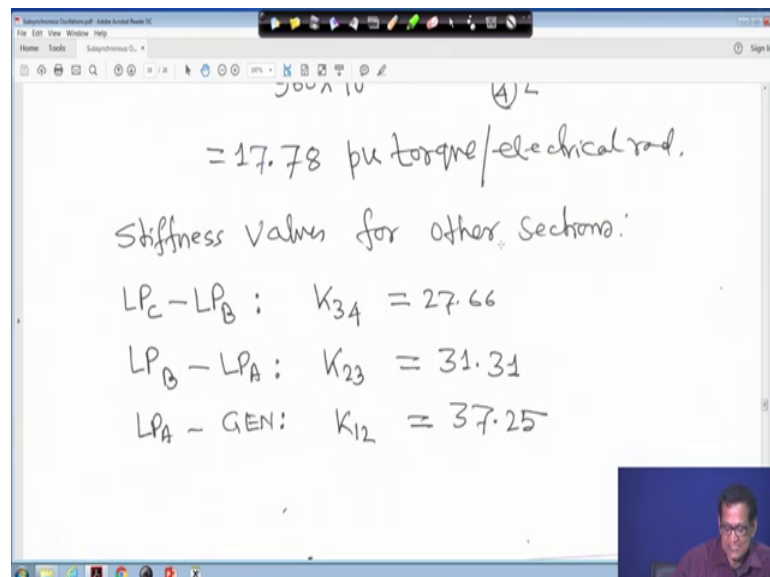 Subsynchronous Oscillations.pdf - Adobe Acrobat Reader DC
File Edit View Window Help
Home Tools Subsynchronous O... × Sign In
= 17.78 pu torque/electrical rad.
Stiffness Values for other sections:
LP_C - LP_B : K_34 = 27.66
LP_B - LP_A : K_23 = 31.31
LP_A - GEN: K_12 = 37.25